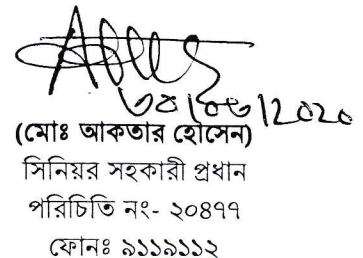 (মোঃ আকতার হোসেন)
সিনিয়র সহকারী প্রধান
পরিচিতি নং- ২০৪৭৭
ফোনঃ ৯১১৯১১২